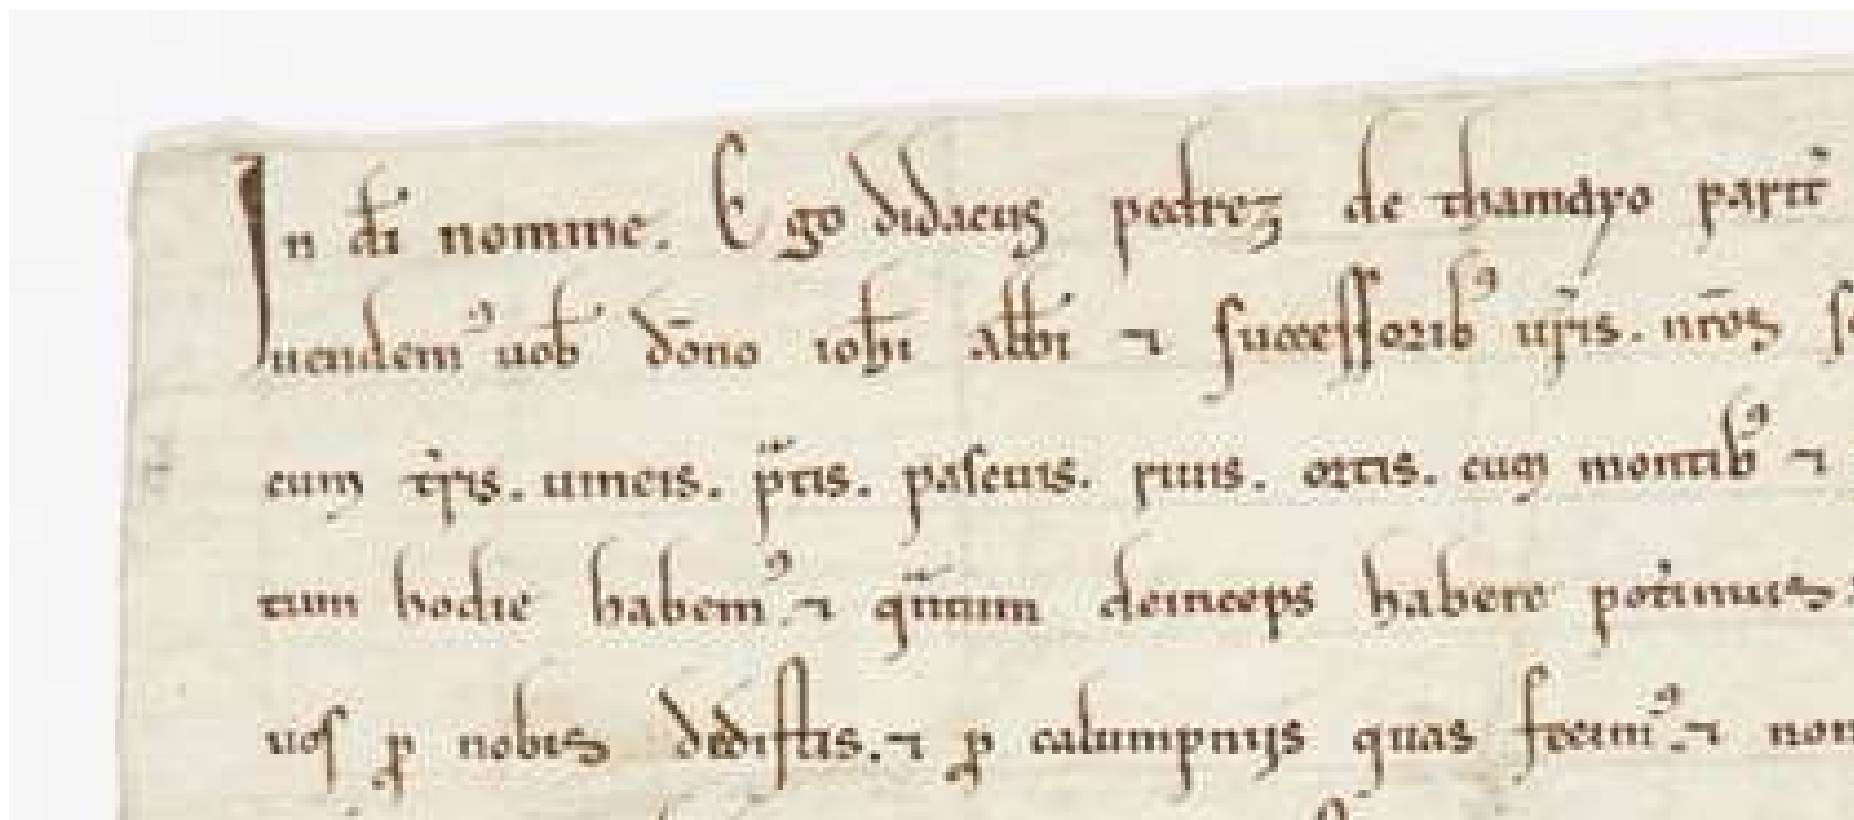 In dī nomine. Ego didacus pedrez de thamayo pariť
uendem⁹ uob̄ dōno ioħi abb̄i ⁊ successorib⁹ ur̄is. nr̄os
cum tr̄is. uineis. pr̄tis. pascuis. riuis. ortis. cum montib⁹ ⁊
tum hodie habem⁹. ⁊ qn̄tum deinceps habere potimus
uos ꝑ nobis dedistis. ⁊ ꝑ calumpnijs quas fecim⁹. ⁊ non